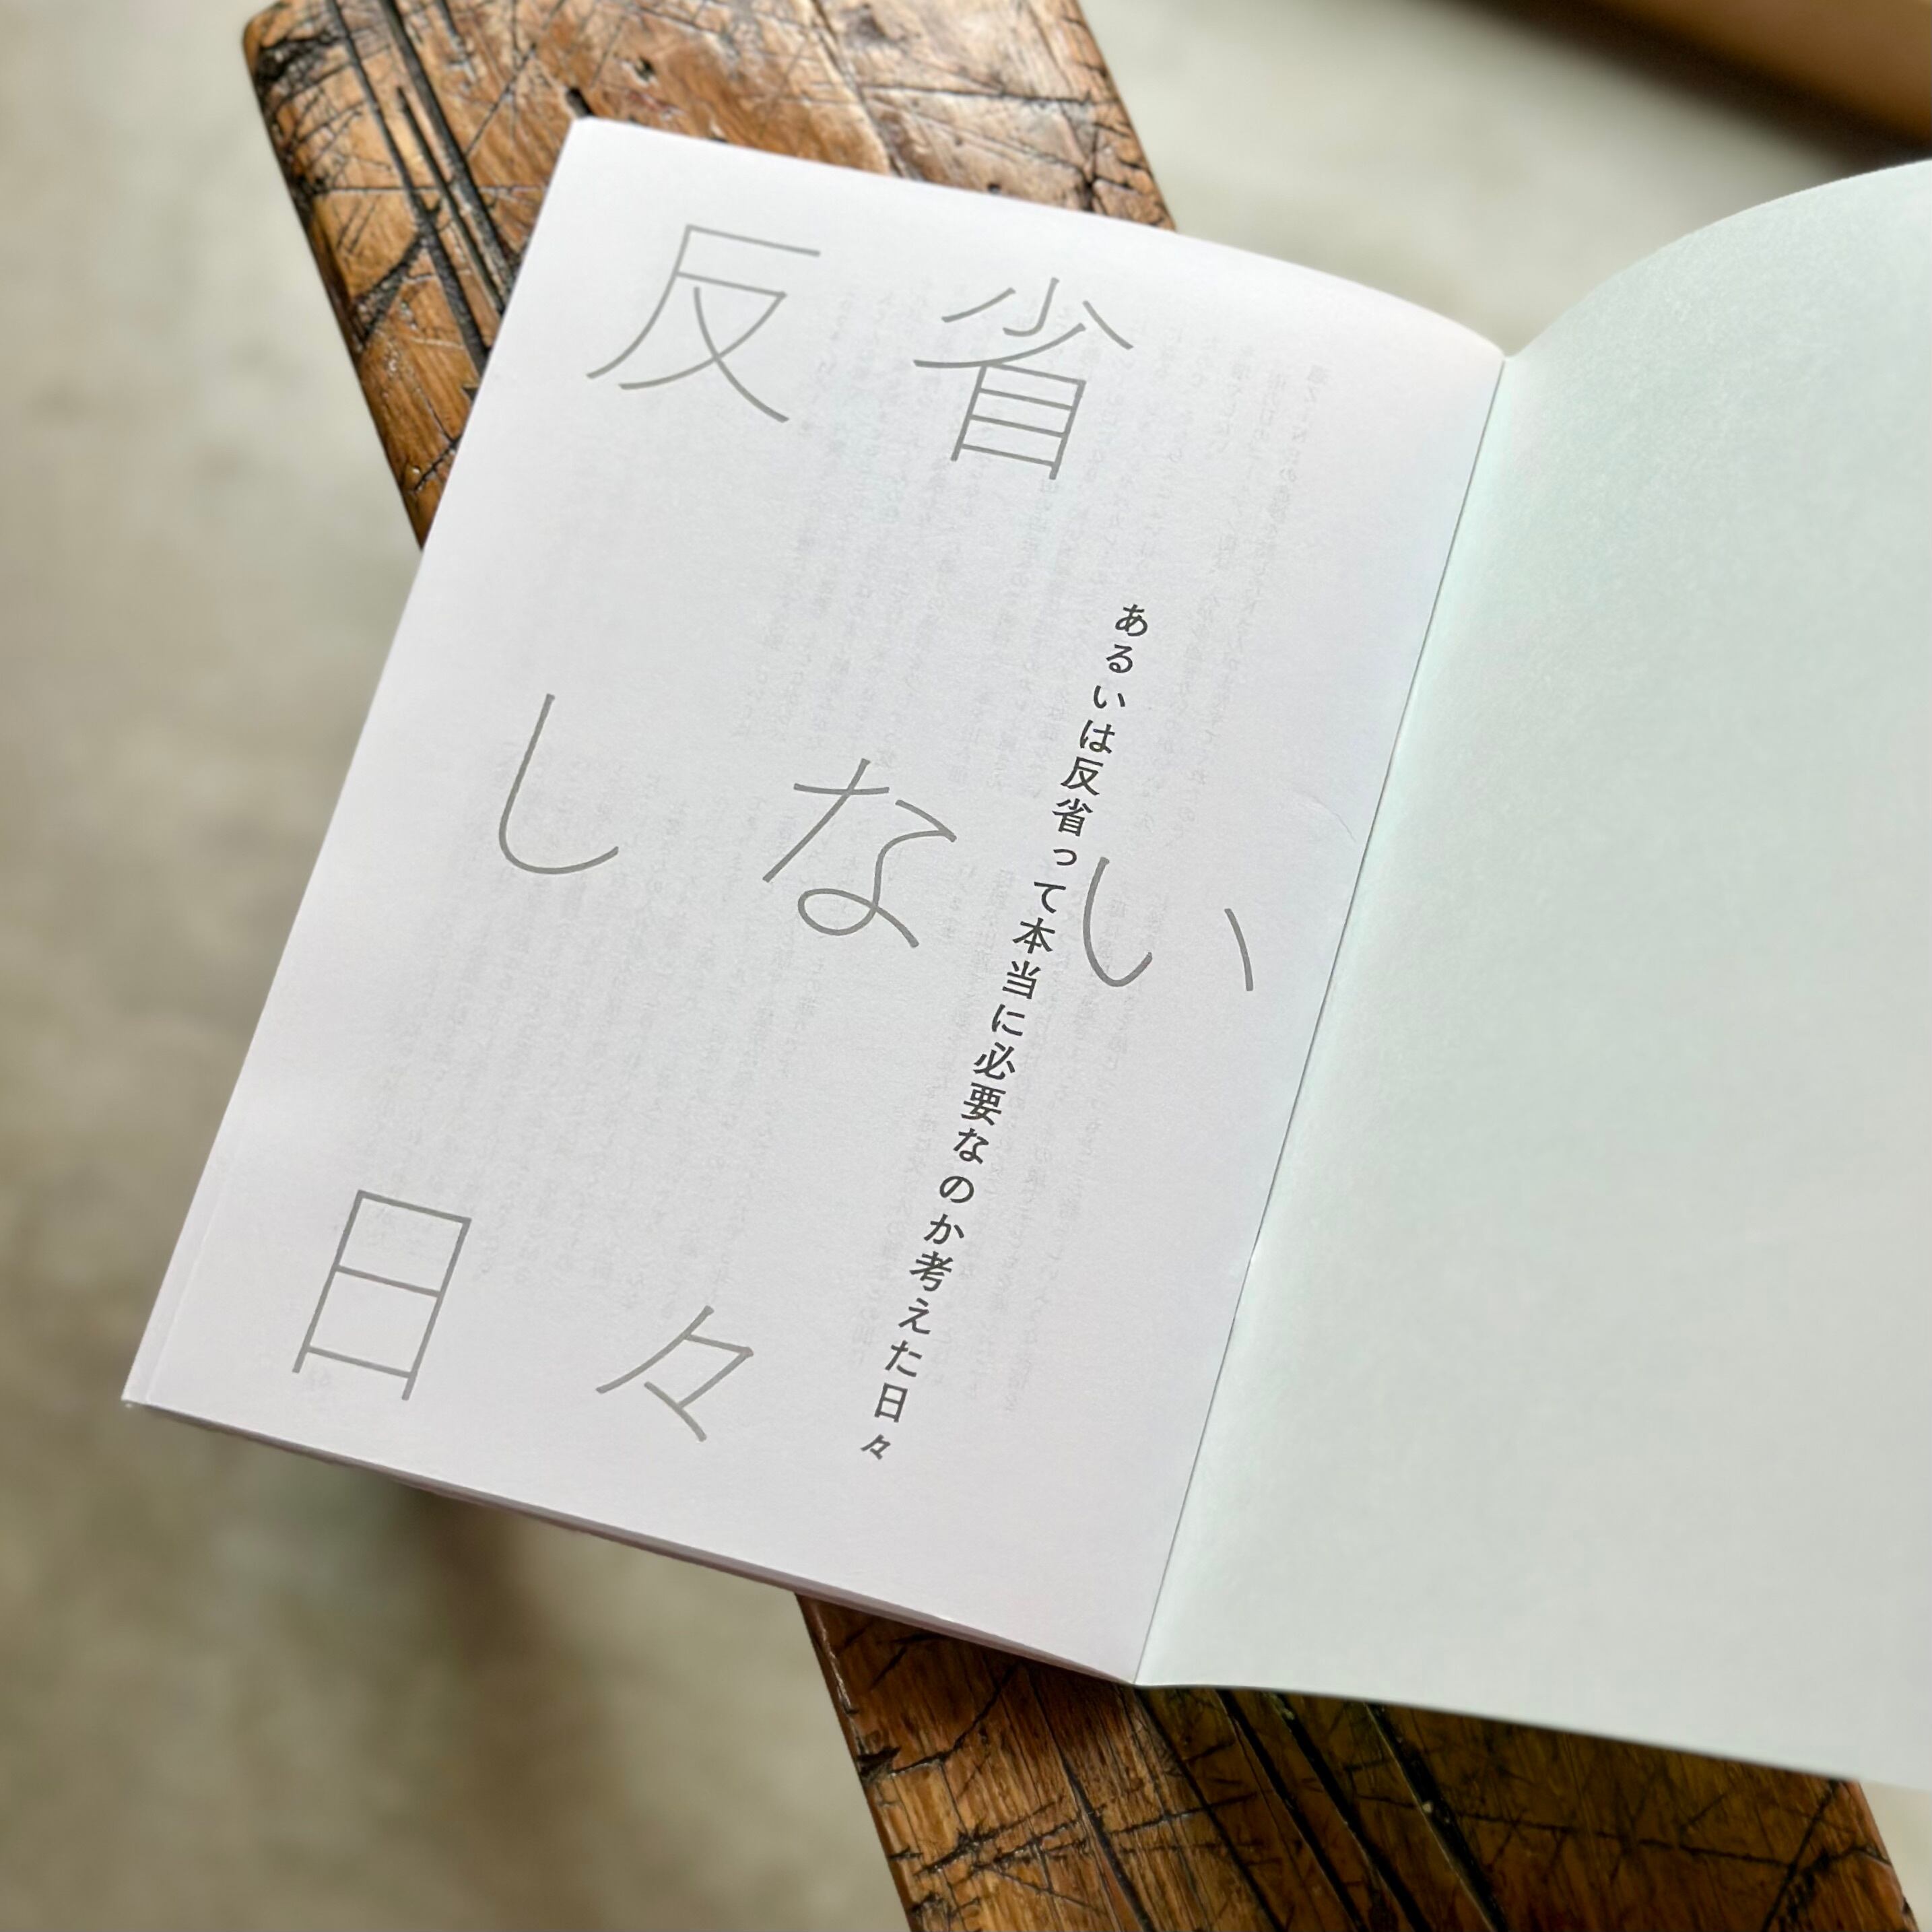 反省
しない
日々
あるいは反省って本当に必要なのか考えた日々